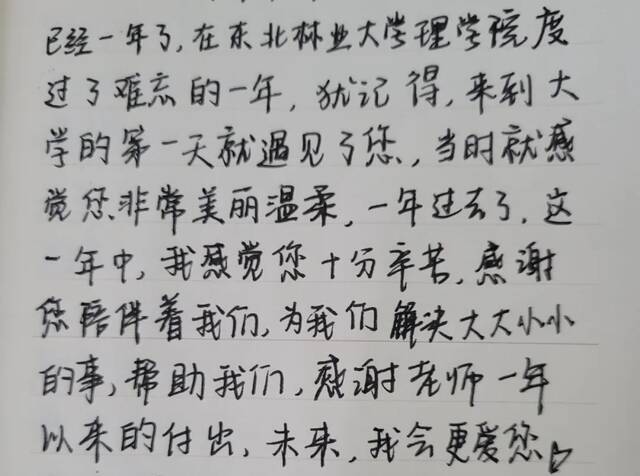 已经一年了,在东北林业大学理学院度
过了难忘的一年,犹记得,来到大
学的第一天就遇见了您,当时就感
觉您非常美丽温柔,一年过去了,这
一年中,我感觉您十分辛苦,感谢
您陪伴着我们,为我们解决大大小小
的事,帮助我们,感谢老师一年
以来的付出,未来,我会更爱您